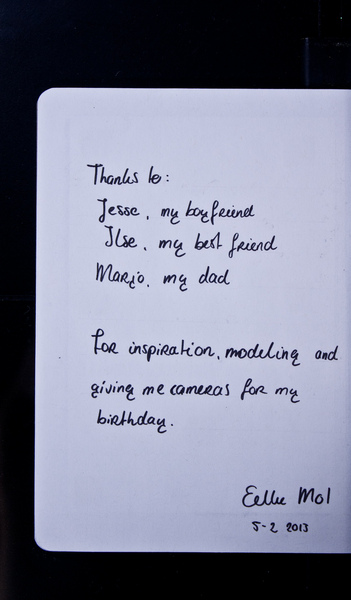 Thanks to:
Jesse, my boyfriend
Ilse, my best friend
Marjo, my dad
for inspiration, modeling and
giving me cameras for my
birthday.
Mol
5-2 2013